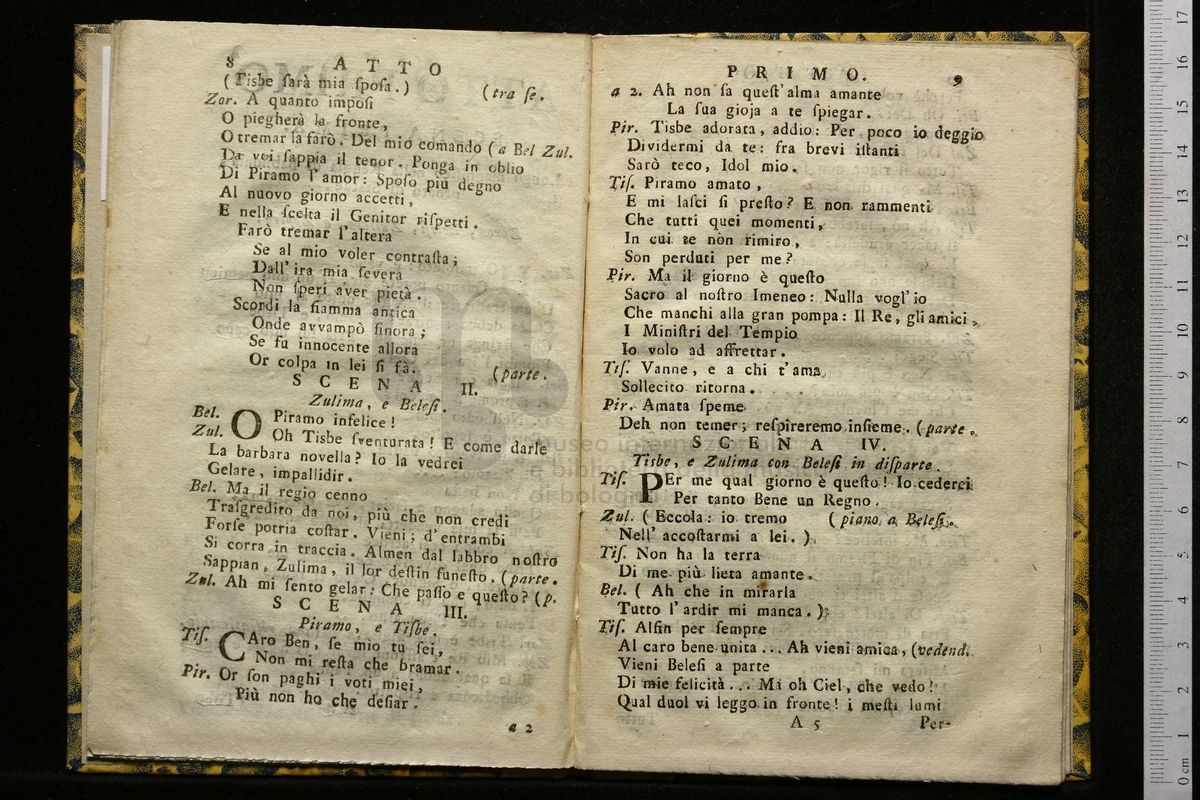 8 ATTO
(Tisbe ſarà mia ſpoſa.) (tra ſe.
Zor. A quanto impoſi
O piegherà la fronte,
O tremar la farò. Del mio comando (a Bel Zul.
Da voi ſappia il tenor. Ponga in oblio
Di Piramo l'amor: Spoſo più degno
Al nuovo giorno accetti,
E nella ſcelta il Genitor riſpetti.
Farò tremar l'altera
Se al mio voler contraſta;
Dall'ira mia ſevera
Non ſperi aver pietà.
Scordi la fiamma antica
Onde avvampò finora;
Se fu innocente allora
Or colpa in lei ſi fa. (parte.
SCENA II.
Zulima, e Beleſi.
Bel. O Piramo infelice!
Zul. Oh Tisbe ſventurata! E come darle
La barbara novella? Io la vedrei
Gelare, impallidir.
Bel. Ma il regio cenno
Traſgredito da noi, più che non credi
Forſe potria coſtar. Vieni; d'entrambi
Si corra in traccia. Almen dal labbro noſtro
Sappian, Zulima, il lor deſtin funeſto. (parte.
Zul. Ah mi ſento gelar: Che paſſo e queſto? (p.
SCENA III.
Piramo, e Tiſbe.
Tiſ. CAro Ben, ſe mio tu ſei,
Non mi reſta che bramar.
Pir. Or ſon paghi i voti miei,
Più non ho che deſiar.
a 2
PRIMO. 9
a 2. Ah non ſa queſt'alma amante
La ſua gioja a te ſpiegar.
Pir. Tisbe adorata, addio: Per poco io deggio
Dividermi da te: fra brevi iſtanti
Sarò teco, Idol mio.
Tiſ. Piramo amato,
E mi laſci ſi preſto? E non rammenti
Che tutti quei momenti,
In cui te non rimiro,
Son perduti per me?
Pir. Ma il giorno è queſto
Sacro al noſtro Imeneo: Nulla vogl'io
Che manchi alla gran pompa: Il Re, gli amici,
I Miniſtri del Tempio
Io volo ad affrettar.
Tiſ. Vanne, e a chi t'ama
Sollecito ritorna.
Pir. Amata ſpeme
Deh non temer; reſpireremo inſieme. (parte.
SCENA IV.
Tisbe, e Zulima con Beleſi in diſparte.
Tiſ. PEr me qual giorno è queſto! Io cederei
Per tanto Bene un Regno.
Zul. (Eccola: io tremo (piano a Beleſi.
Nell'accoſtarmi a lei.)
Tiſ. Non ha la terra
Di me più lieta amante.
Bel. (Ah che in mirarla
Tutto l'ardir mi manca.)
Tiſ. Alfin per ſempre
Al caro bene unita... Ah vieni amica, (vedend.
Vieni Beleſi a parte
Di mie felicità... Mi oh Ciel, che vedo!
Qual duol vi leggo in fronte! i meſti lumi
A 5 Per-
museo internazionale
e biblioteca
di bologna
0 cm 1 2 3 4 5 6 7 8 9 10 11 12 13 14 15 16 17